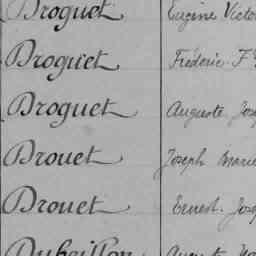 Droguet Eugène Victo
Droguet Frédéric F
Droguet Auguste Jos
Drouet Joseph Marie
Drouet Ernest Jos